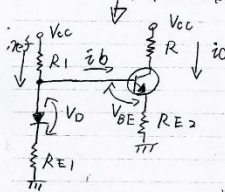 Vcc
Vcc
iref
R1
ib
R
ic
VD
VBE
RE1
RE2